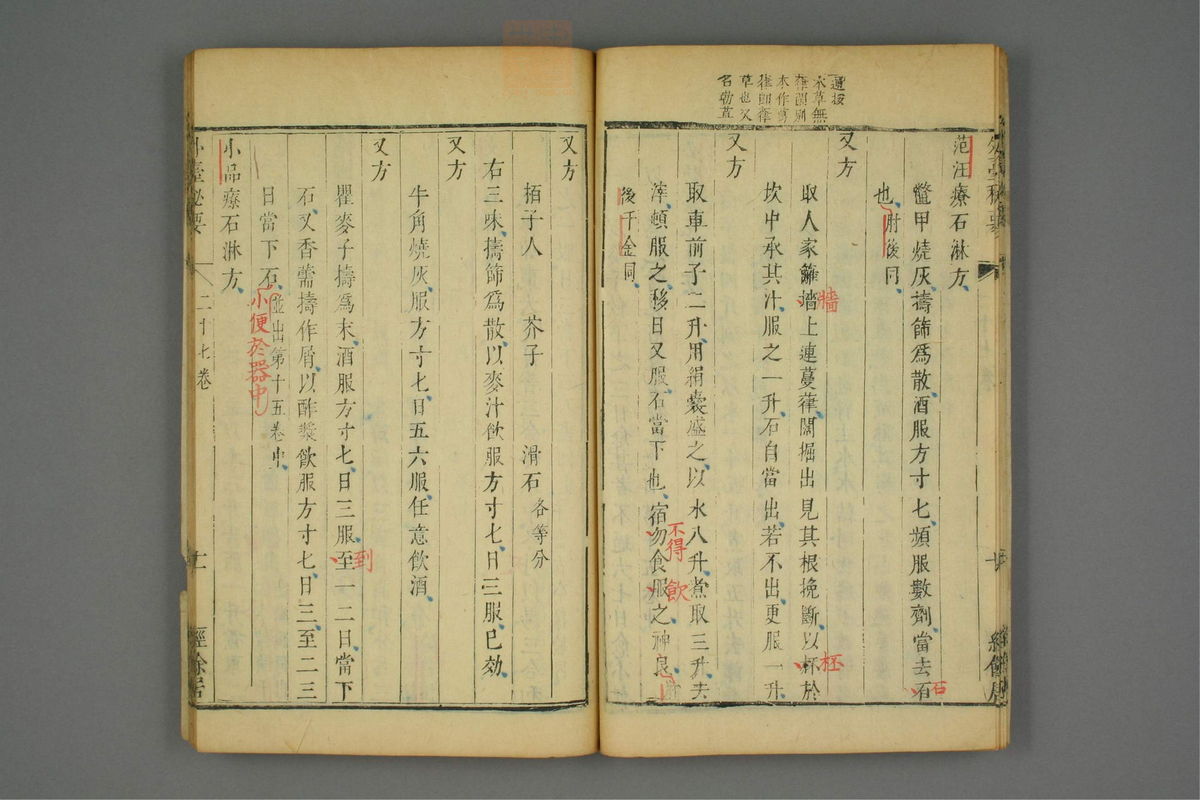 范汪療石淋方
鱉甲燒灰擣篩爲散酒服方寸匕頻服數劑當去石
石
也肘後同
又方
取人家籬墻上連蔓葎闊掘出見其根挽斷以杯於
牆
杯
坎中承其汁服之一升石自當出若不出更服一升
又方
取車前子二升用絹囊盛之以水八升煮取三升去
滓頓服之移日又服石當下也宿勿食服之神良
不得
飲
後千金同
本草無
本作葛
草也又
名勒蓋
又方
栢子人 芥子 滑石各等分
右三味擣篩爲散以麥汁飲服方寸匕日三服已効
又方
牛角燒灰服方寸匕日五六服任意飲酒
又方
瞿麥子擣爲末酒服方寸匕日三服至一二日當下
到
石又香薷擣作屑以酢漿飲服方寸匕日三至二三
日當下石並出第十五卷中
小便於器中
小品療石淋方
外臺秘要
二十七卷
十一
經餘居